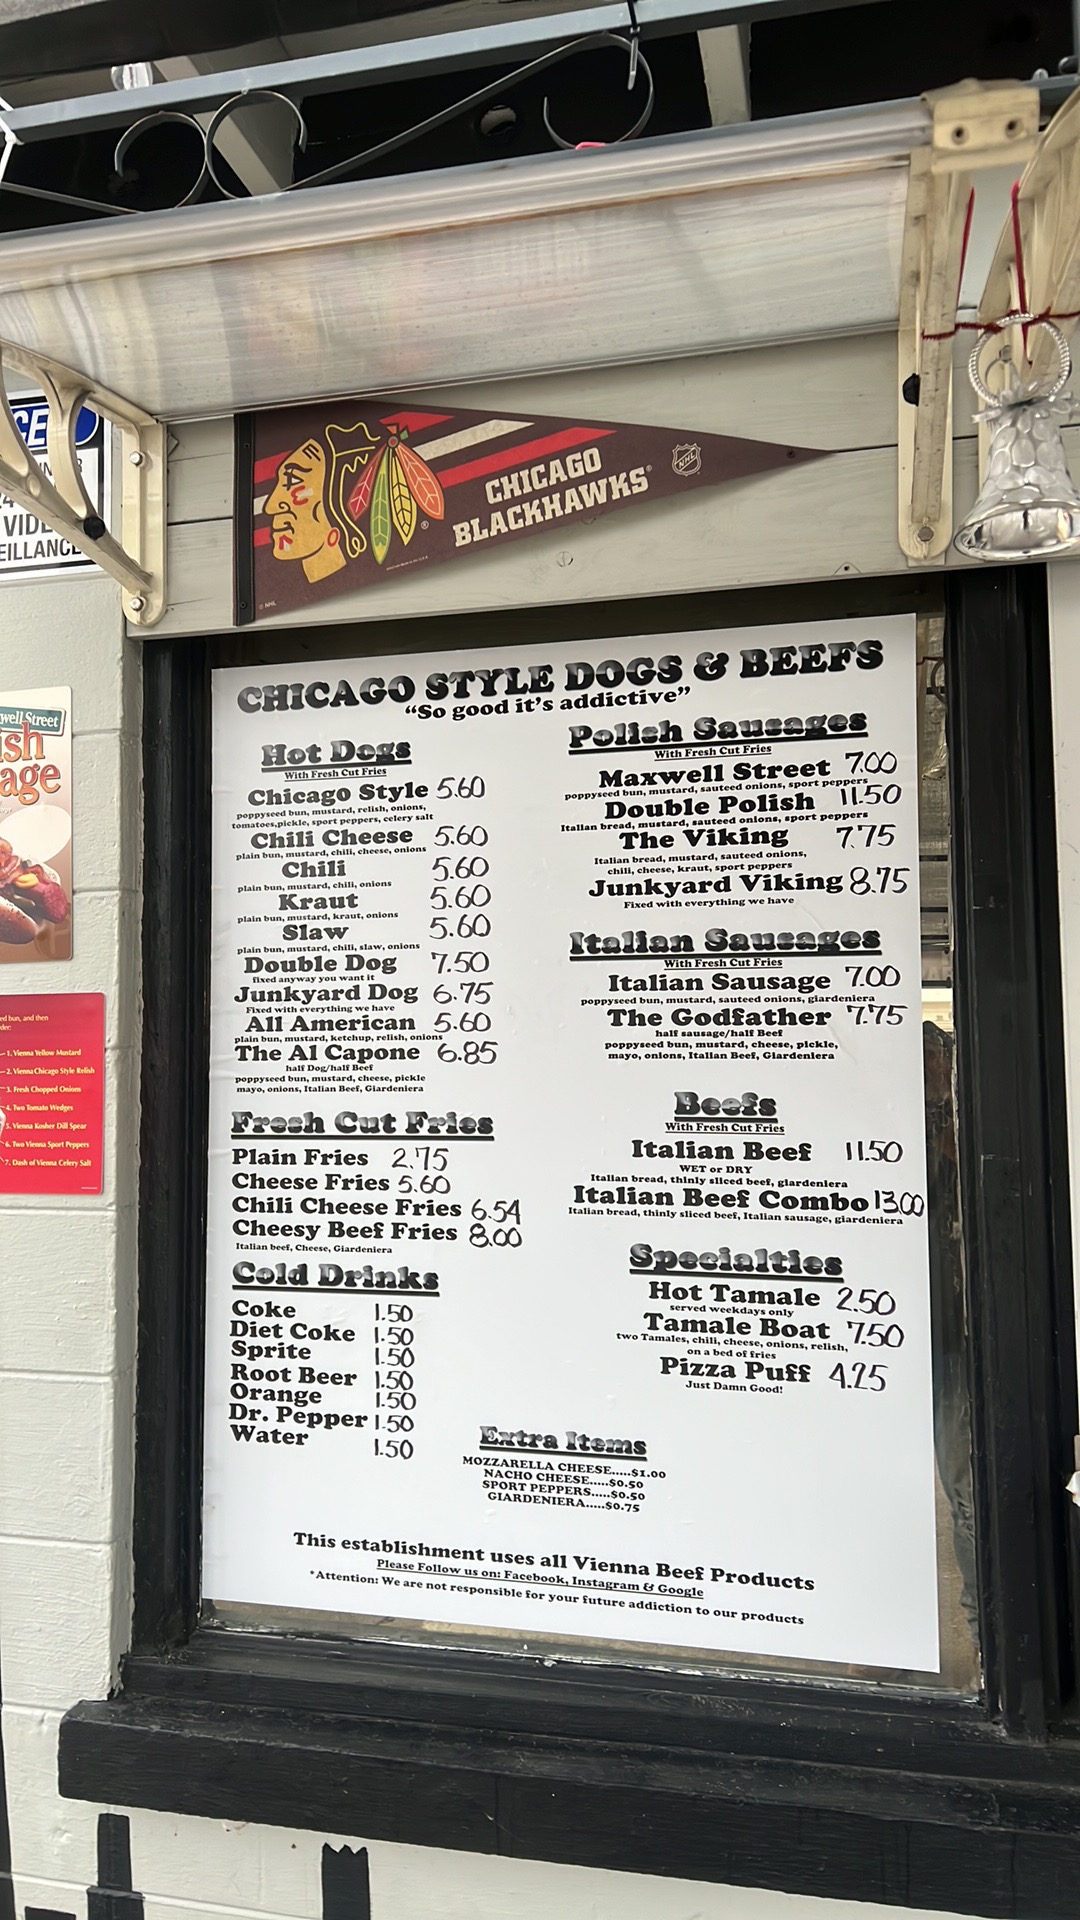 CE
24
VIDE
EILLANCE
CHICAGO
BLACKHAWKS
NHL
© NHL
CHICAGO STYLE DOGS & BEEFS
“So good it’s addictive”
Hot Dogs
With Fresh Cut Fries
Chicago Style 5.60
poppyseed bun, mustard, relish, onions,
tomatoes,pickle, sport peppers, celery salt
Chili Cheese 5.60
plain bun, mustard, chili, cheese, onions
Chili 5.60
plain bun, mustard, chili, onions
Kraut 5.60
plain bun, mustard, kraut, onions
Slaw 5.60
plain bun, mustard, chili, slaw, onions
Double Dog 7.50
fixed anyway you want it
Junkyard Dog 6.75
Fixed with everything we have
All American 5.60
plain bun, mustard, ketchup, relish, onions
The Al Capone 6.85
half Dog/half Beef
poppyseed bun, mustard, cheese, pickle
mayo, onions, Italian Beef, Giardeniera
Fresh Cut Fries
Plain Fries 2.75
Cheese Fries 5.60
Chili Cheese Fries 6.54
Cheesy Beef Fries 8.00
Italian beef, Cheese, Giardeniera
Cold Drinks
Coke 1.50
Diet Coke 1.50
Sprite 1.50
Root Beer 1.50
Orange 1.50
Dr. Pepper 1.50
Water 1.50
Polish Sausages
With Fresh Cut Fries
Maxwell Street 7.00
poppyseed bun, mustard, sauteed onions, sport peppers
Double Polish 11.50
Italian bread, mustard, sauteed onions, sport peppers
The Viking 7.75
Italian bread, mustard, sauteed onions,
chili, cheese, kraut, sport peppers
Junkyard Viking 8.75
Fixed with everything we have
Italian Sausages
With Fresh Cut Fries
Italian Sausage 7.00
poppyseed bun, mustard, sauteed onions, giardeniera
The Godfather 7.75
half sausage/half Beef
poppyseed bun, mustard, cheese, pickle,
mayo, onions, Italian Beef, Giardeniera
Beefs
With Fresh Cut Fries
Italian Beef 11.50
WET or DRY
Italian bread, thinly sliced beef, giardeniera
Italian Beef Combo 13.00
Italian bread, thinly sliced beef, Italian sausage, giardeniera
Specialties
Hot Tamale 2.50
served weekdays only
Tamale Boat 7.50
two Tamales, chili, cheese, onions, relish,
on a bed of fries
Pizza Puff 4.25
Just Damn Good!
Extra Items
MOZZARELLA CHEESE.....$1.00
NACHO CHEESE.....$0.50
SPORT PEPPERS.....$0.50
GIARDENIERA.....$0.75
This establishment uses all Vienna Beef Products
Please Follow us on: Facebook, Instagram & Google
*Attention: We are not responsible for your future addiction to our products
well Street
ish
age
ed bun, and then
der:
1. Vienna Yellow Mustard
2. Vienna Chicago Style Relish
3. Fresh Chopped Onions
4. Two Tomato Wedges
5. Vienna Kosher Dill Spear
6. Two Vienna Sport Peppers
7. Dash of Vienna Celery Salt